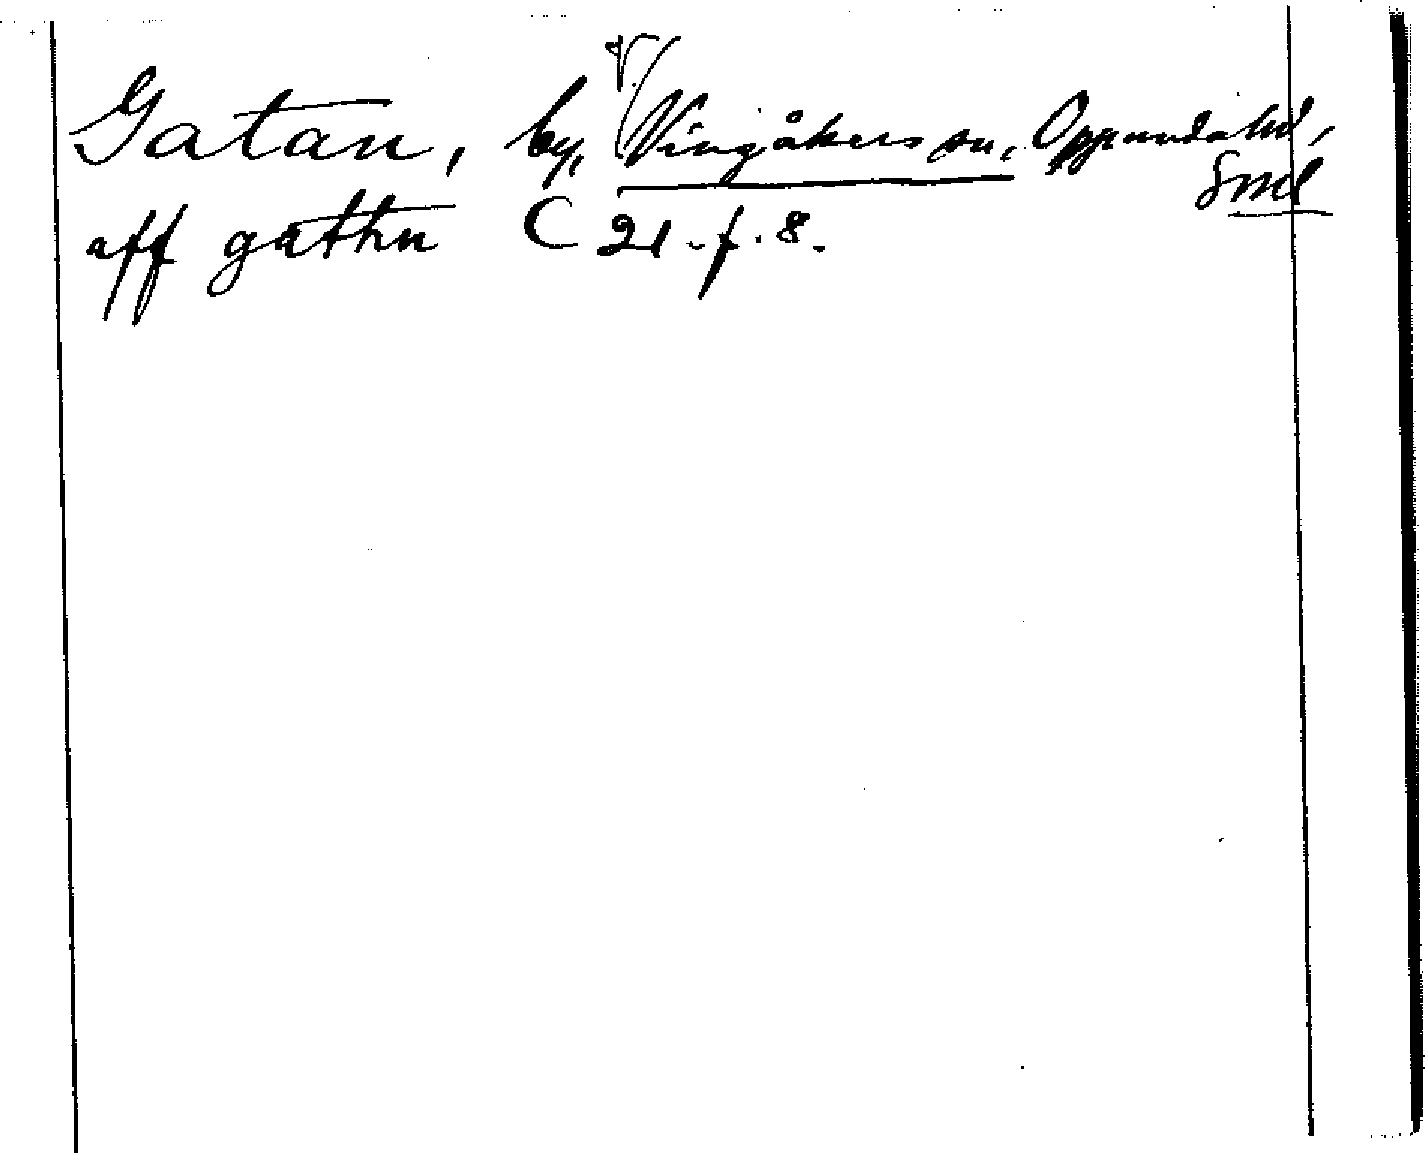 V/
Gatan, by, Vingåkers sn, Oppunda hd,
Sml
aff gathu C 21 . f . 8.